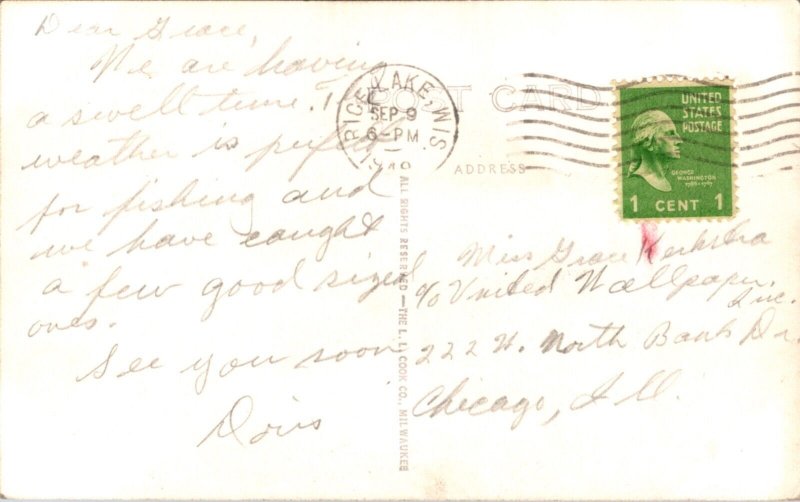 Dear Grace,
We are having
a swell time. The
weather is perfect
for fishing and
we have caught
a few good sized
ones.
See you soon
Doris
POST CARD
ADDRESS
RICE LAKE, WIS.
SEP 9
6-PM
UNITED
STATES
POSTAGE
GEORGE
WASHINGTON
1789-1797
1 CENT 1
ALL RIGHTS RESERVED—THE L. L. COOK CO., MILWAUKEE
Miss Grace
c/o United Wallpaper,
Inc.
222 W. North Bank Dr.
Chicago, Ill.